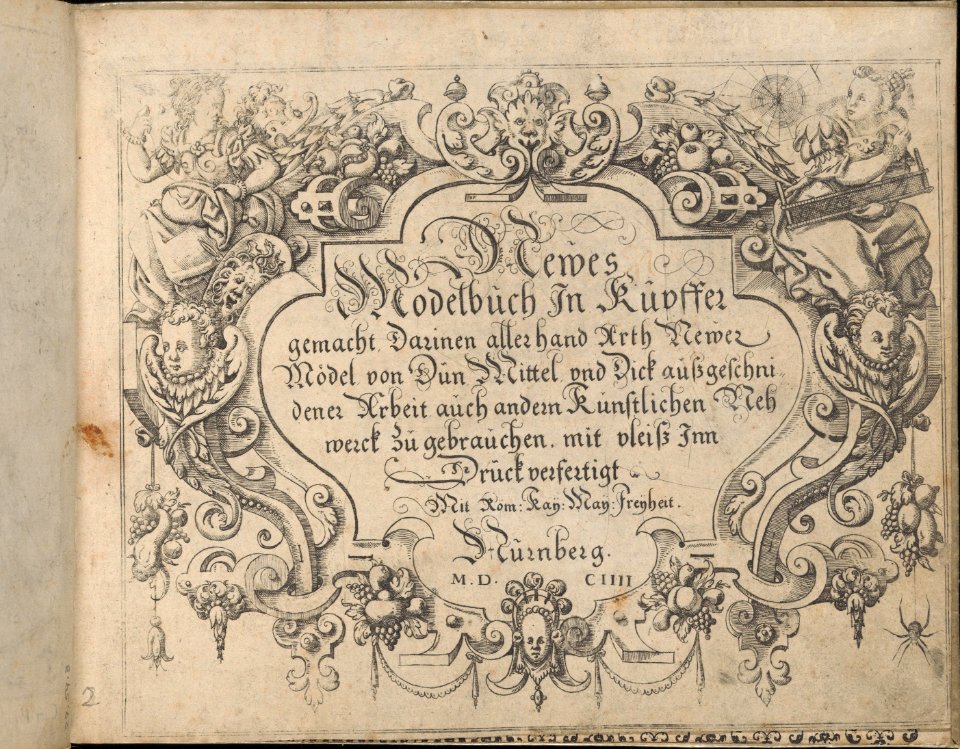 Newes
Modelbuch In Kupffer
gemacht Darinen allerhand Arth Newer
Model von Dün Mittel vnd Dick außgeschni
dener Arbeit auch andern Kunstlichen Neh
werck zu gebrauchen. mit vleiß Inn
Druck verfertigt
Mit Rom: Kay: May: Freyheit.
Nürnberg.
M. D. CIIII
2